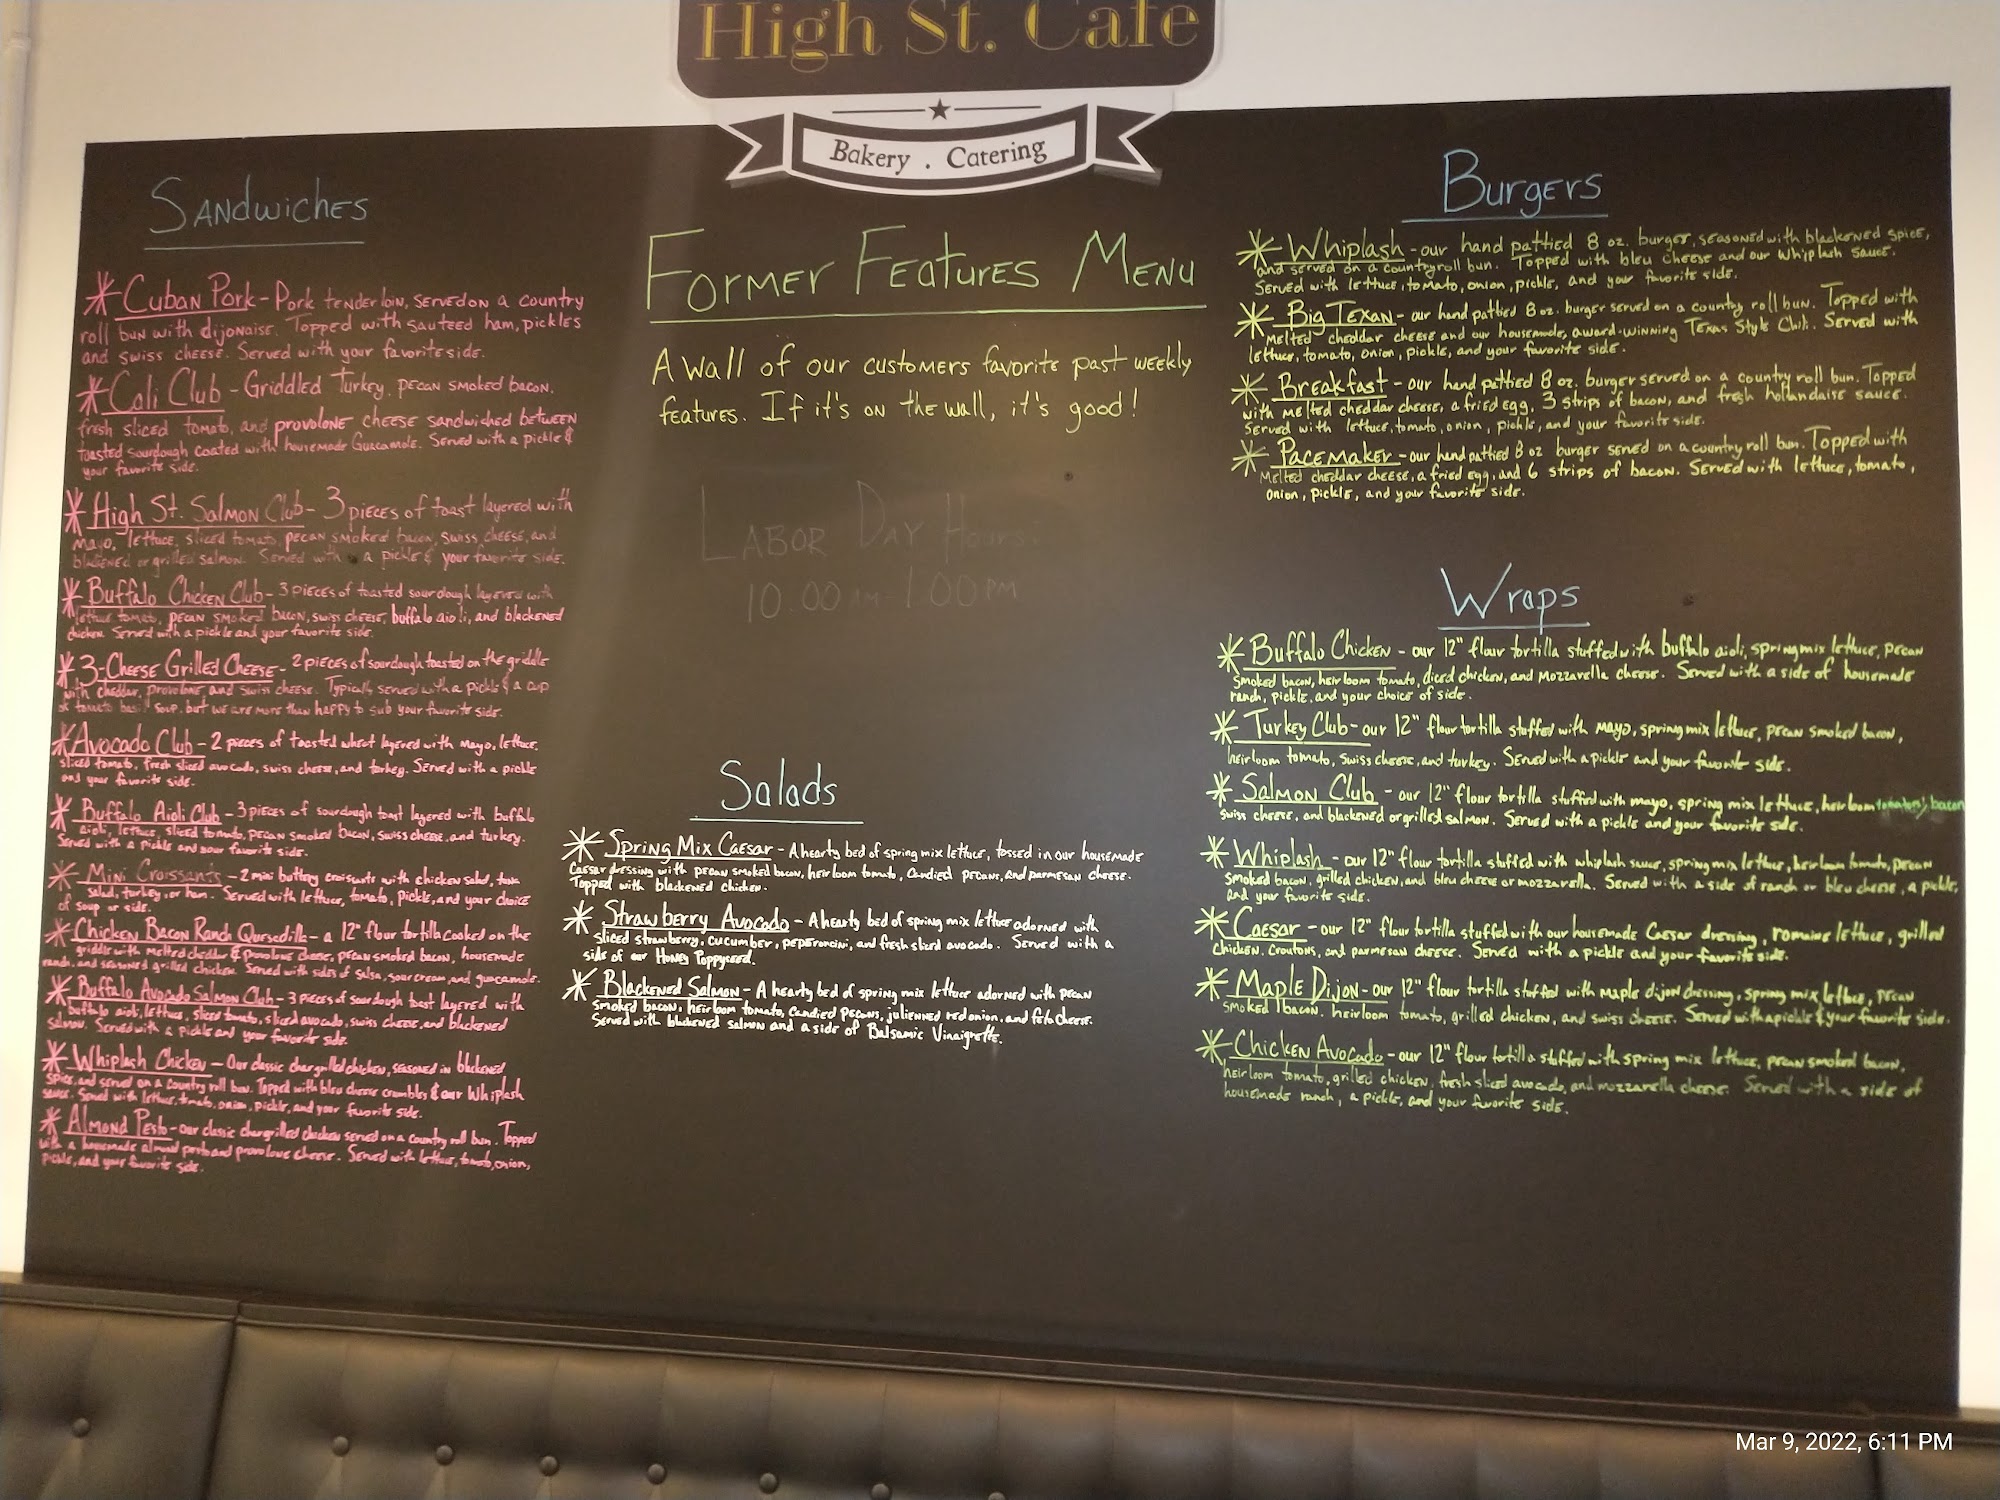 High St. Cafe
Bakery . Catering
Sandwiches
Cuban Pork - Pork tenderloin, served on a country
roll bun with dijonaise. Topped with sauteed ham, pickles
and swiss cheese. Served with your favorite side.
Cali Club - Griddled Turkey, pecan smoked bacon,
fresh sliced tomato, and provolone cheese sandwiched between
toasted sourdough coated with housemade Guacamole. Served with a pickle &
your favorite side.
High St. Salmon Club - 3 pieces of toast layered with
mayo, lettuce, sliced tomato, pecan smoked bacon, swiss cheese, and
blackened or grilled salmon. Served with a pickle & your favorite side.
Buffalo Chicken Club - 3 pieces of toasted sourdough layered with
lettuce, tomato, pecan smoked bacon, swiss cheese, buffalo aioli, and blackened
chicken. Served with a pickle and your favorite side.
3-Cheese Grilled Cheese - 2 pieces of sourdough toasted on the griddle
with cheddar, provolone, and swiss cheese. Typically served with a pickle & a cup
of tomato basil soup, but we are more than happy to sub your favorite side.
Avocado Club - 2 pieces of toasted wheat layered with mayo, lettuce,
sliced tomato, fresh sliced avocado, swiss cheese, and turkey. Served with a pickle
and your favorite side.
Buffalo Aioli Club - 3 pieces of sourdough toast layered with buffalo
aioli, lettuce, sliced tomato, pecan smoked bacon, swiss cheese, and turkey.
Served with a pickle and your favorite side.
Mini Croissants - 2 mini buttery croissants with chicken salad, tuna
salad, turkey, or ham. Served with lettuce, tomato, pickle, and your choice
of soup or side.
Chicken Bacon Ranch Quesadilla - a 12" flour tortilla cooked on the
griddle with melted cheddar & provolone cheese, pecan smoked bacon, housemade
ranch, and seasoned grilled chicken. Served with sides of salsa, sour cream, and guacamole.
Buffalo Avocado Salmon Club - 3 pieces of sourdough toast layered with
buffalo aioli, lettuce, sliced tomato, sliced avocado, swiss cheese, and blackened
salmon. Served with a pickle and your favorite side.
Whiplash Chicken - Our classic chargrilled chicken, seasoned in blackened
spice, and served on a country roll bun. Topped with bleu cheese crumbles & our Whiplash
sauce. Served with lettuce, tomato, onion, pickle, and your favorite side.
Almond Pesto - our classic chargrilled chicken served on a country roll bun. Topped
with a housemade almond pesto and provolone cheese. Served with lettuce, tomato, onion,
pickle, and your favorite side.
Former Features Menu
A wall of our customers favorite past weekly
features. If it's on the wall, it's good!
Labor Day Hours:
10:00 AM - 1:00 PM
Salads
Spring Mix Caesar - A hearty bed of spring mix lettuce, tossed in our housemade
Caesar dressing with pecan smoked bacon, heirloom tomato, candied pecans, and parmesan cheese.
Topped with blackened chicken.
Strawberry Avocado - A hearty bed of spring mix lettuce adorned with
sliced strawberry, cucumber, peperoncini, and fresh sliced avocado. Served with a
side of our Honey Poppyseed.
Blackened Salmon - A hearty bed of spring mix lettuce adorned with pecan
smoked bacon, heirloom tomato, candied pecans, julienned red onion, and feta cheese.
Served with blackened salmon and a side of Balsamic Vinaigrette.
Burgers
Whiplash - our hand pattied 8 oz. burger, seasoned with blackened spice,
and served on a country roll bun. Topped with bleu cheese and our Whiplash sauce.
Served with lettuce, tomato, onion, pickle, and your favorite side.
Big Texan - our hand pattied 8 oz. burger served on a country roll bun. Topped with
melted cheddar cheese and our housemade, award-winning Texas Style Chili. Served with
lettuce, tomato, onion, pickle, and your favorite side.
Breakfast - our hand pattied 8 oz. burger served on a country roll bun. Topped
with melted cheddar cheese, a fried egg, 3 strips of bacon, and fresh hollandaise sauce.
Served with lettuce, tomato, onion, pickle, and your favorite side.
Pacemaker - our hand pattied 8 oz burger served on a country roll bun. Topped with
melted cheddar cheese, a fried egg, and 6 strips of bacon. Served with lettuce, tomato,
onion, pickle, and your favorite side.
Wraps
Buffalo Chicken - our 12" flour tortilla stuffed with buffalo aioli, spring mix lettuce, pecan
smoked bacon, heirloom tomato, diced chicken, and mozzarella cheese. Served with a side of housemade
ranch, pickle, and your choice of side.
Turkey Club - our 12" flour tortilla stuffed with mayo, spring mix lettuce, pecan smoked bacon,
heirloom tomato, swiss cheese, and turkey. Served with a pickle and your favorite side.
Salmon Club - our 12" flour tortilla stuffed with mayo, spring mix lettuce, heirloom tomatoes, bacon
swiss cheese, and blackened or grilled salmon. Served with a pickle and your favorite side.
Whiplash - our 12" flour tortilla stuffed with whiplash sauce, spring mix lettuce, heirloom tomato, pecan
smoked bacon, grilled chicken, and bleu cheese or mozzarella. Served with a side of ranch or bleu cheese, a pickle,
and your favorite side.
Caesar - our 12" flour tortilla stuffed with our housemade Caesar dressing, romaine lettuce, grilled
chicken, croutons, and parmesan cheese. Served with a pickle and your favorite side.
Maple Dijon - our 12" flour tortilla stuffed with maple dijon dressing, spring mix lettuce, pecan
smoked bacon, heirloom tomato, grilled chicken, and swiss cheese. Served with a pickle & your favorite side.
Chicken Avocado - our 12" flour tortilla stuffed with spring mix lettuce, pecan smoked bacon,
heirloom tomato, grilled chicken, fresh sliced avocado, and mozzarella cheese. Served with a side of
housemade ranch, a pickle, and your favorite side.
Mar 9, 2022, 6:11 PM